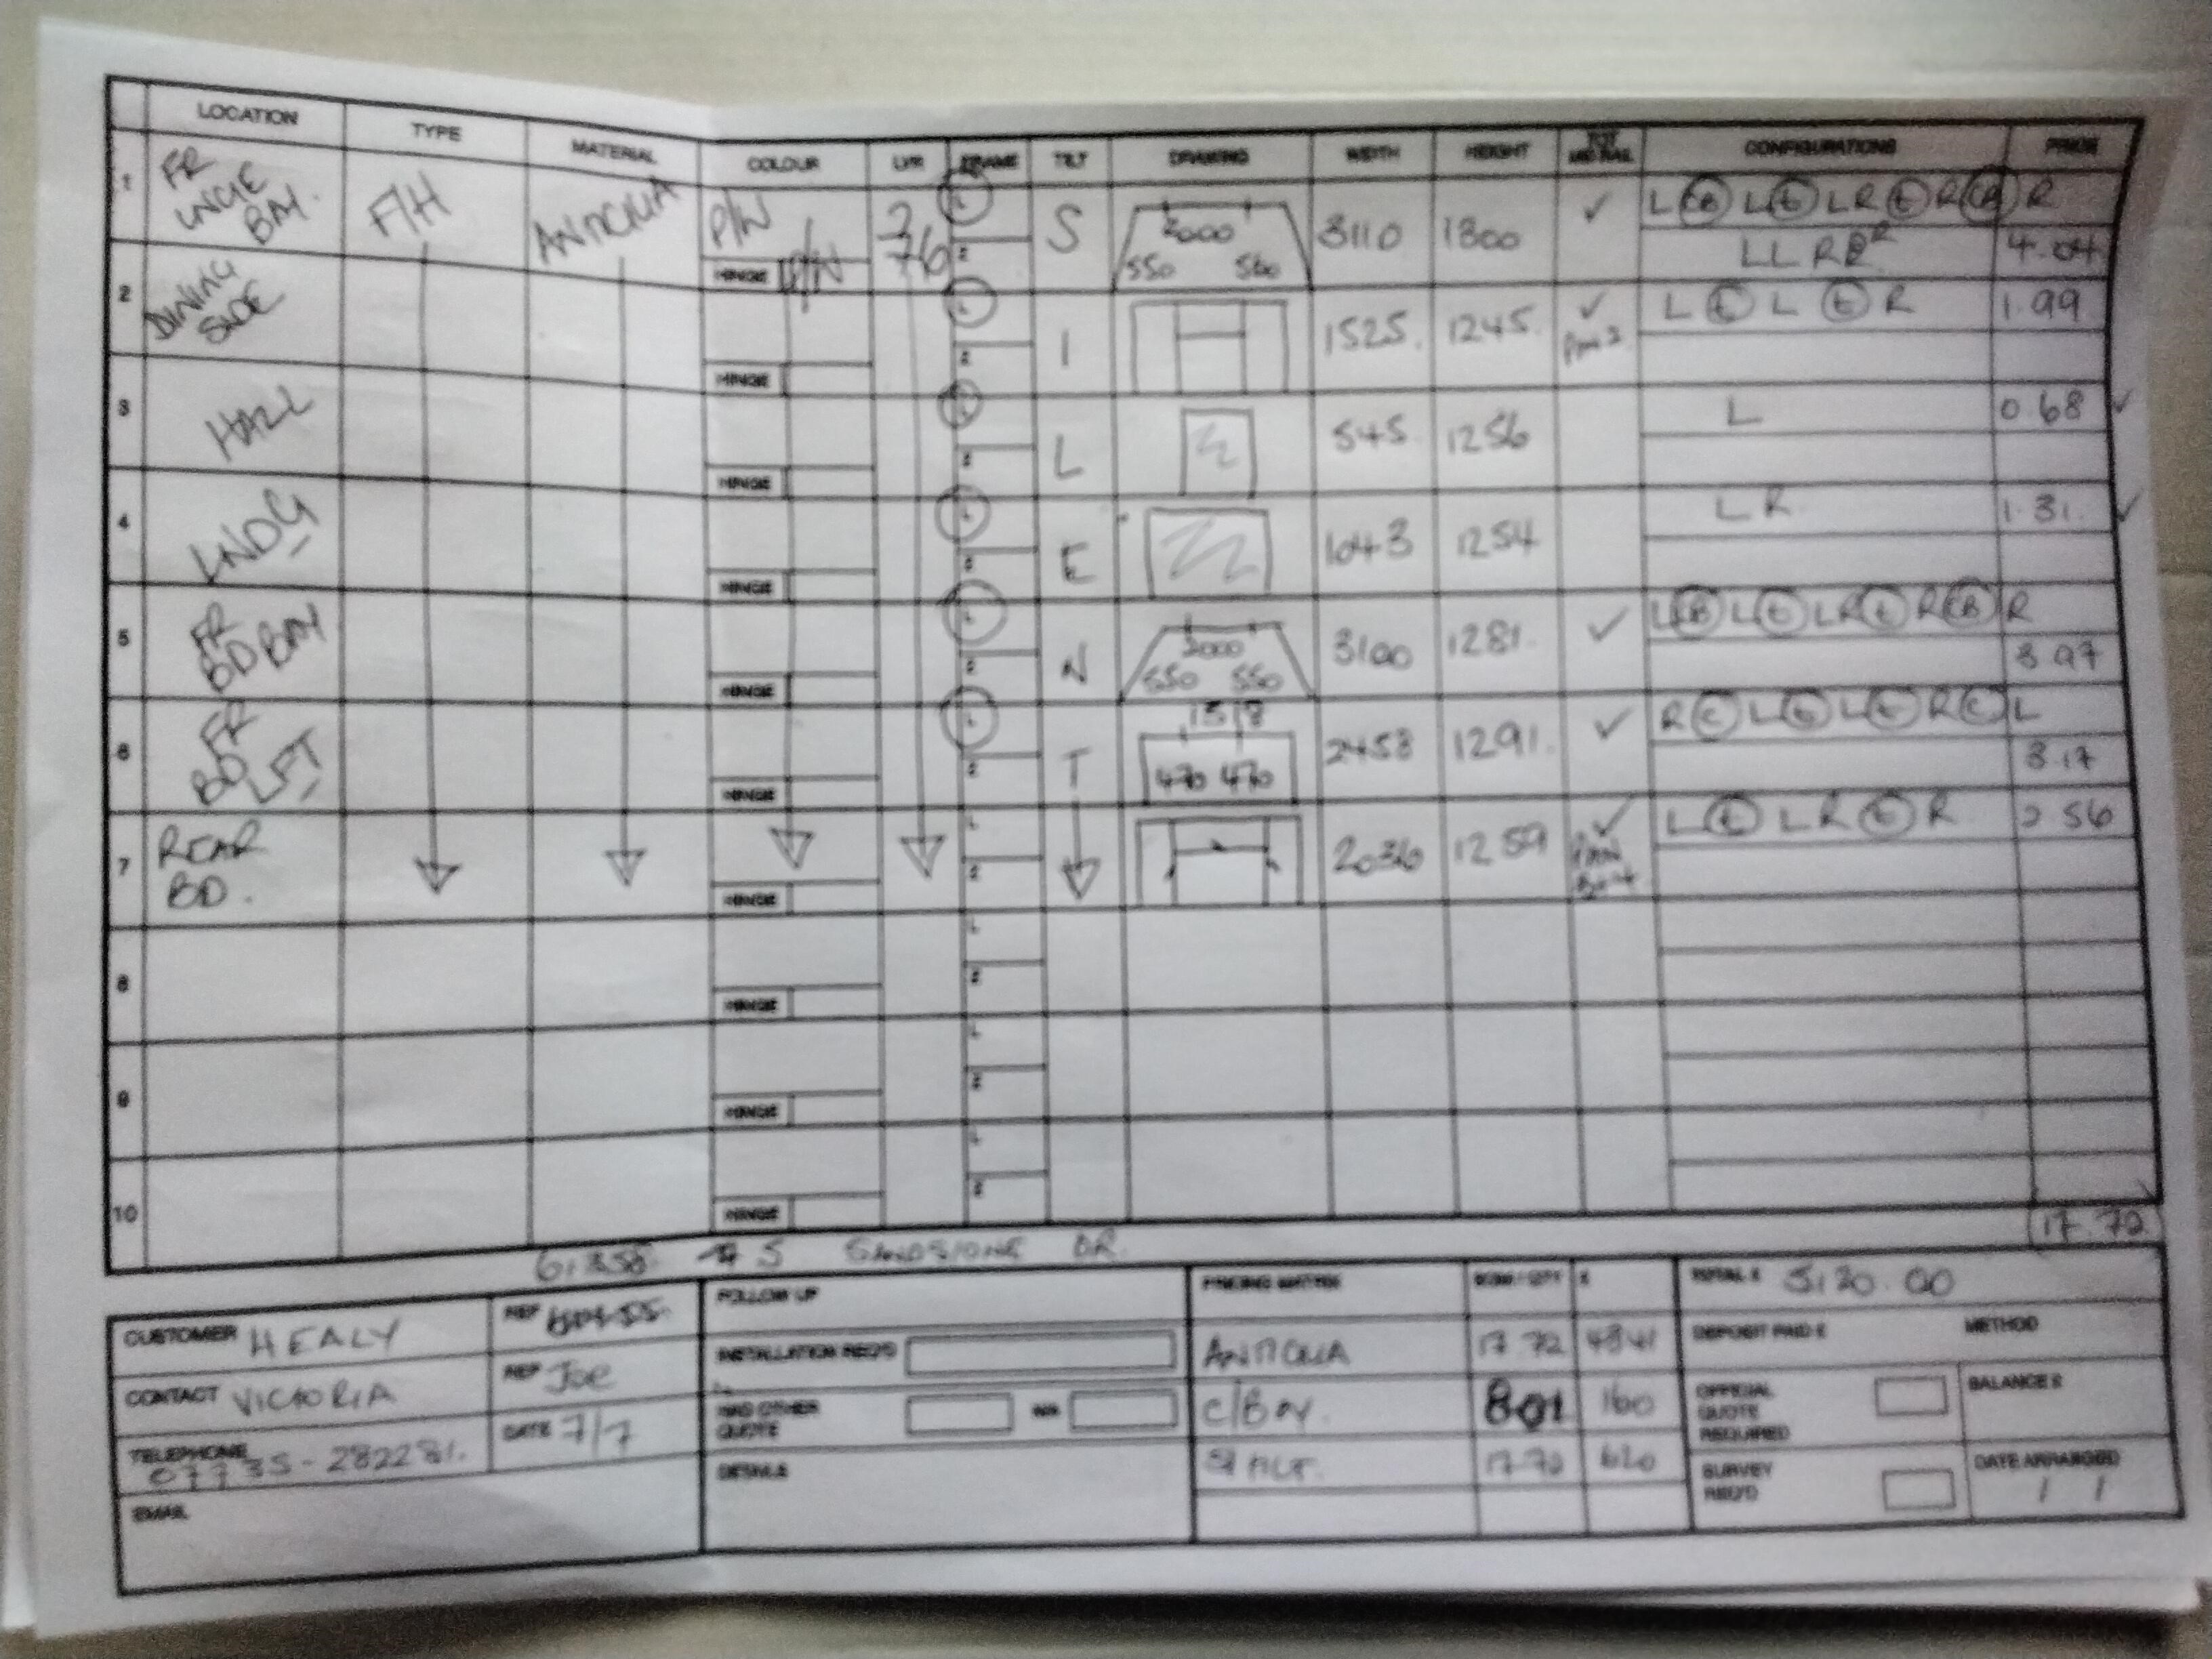 LOCATION TYPE MATERIAL COLOUR LVR FRAME TILT DRAWING WIDTH HEIGHT MID RAIL CONFIGURATIONS PRICE
1 FR LNGE BAY. F/H ANTIGUA P/W 76 S 2000 550 560 3110 1800 ✓ L B L t L R t R B R
HINGE P/W L L R R 4.04
2 DINING SIDE HINGE I 1525. 1245. ✓ L t L t R 1.99
3 HALL HINGE L 545 1256 L 0.68 ✓
4 LNDG HINGE E 1043 1254 L R 1.31. ✓
5 FR BD BAY HINGE N 2000 550 550 3100 1281. ✓ L B L t L R t R B R 3.97
6 FR BD LFT HINGE T 1518 470 470 2458 1291. ✓ R C L t L t R C L 3.17
7 REAR BD. HINGE 2036 1259 ✓ L t L R t R 2.56
8 HINGE
9 HINGE
10 HINGE
17.72
5 SANDSTONE DR.
CUSTOMER HEALY REF
CONTACT VICTORIA REP Joe
TELEPHONE 07735-282281. DATE 7/7
EMAIL
FOLLOW UP
INSTALLATION REQ'D
HAD OTHER QUOTE
DETAILS
PRICING MATRIX SQM / QTY £
ANTIGUA 17.72 4341
C/BAY. 160
17.72 620
TOTAL £ 5120.00
DEPOSIT PAID £ METHOD
OFFICIAL QUOTE REQUIRED BALANCE £
SURVEY REQ'D DATE ARRANGED / /